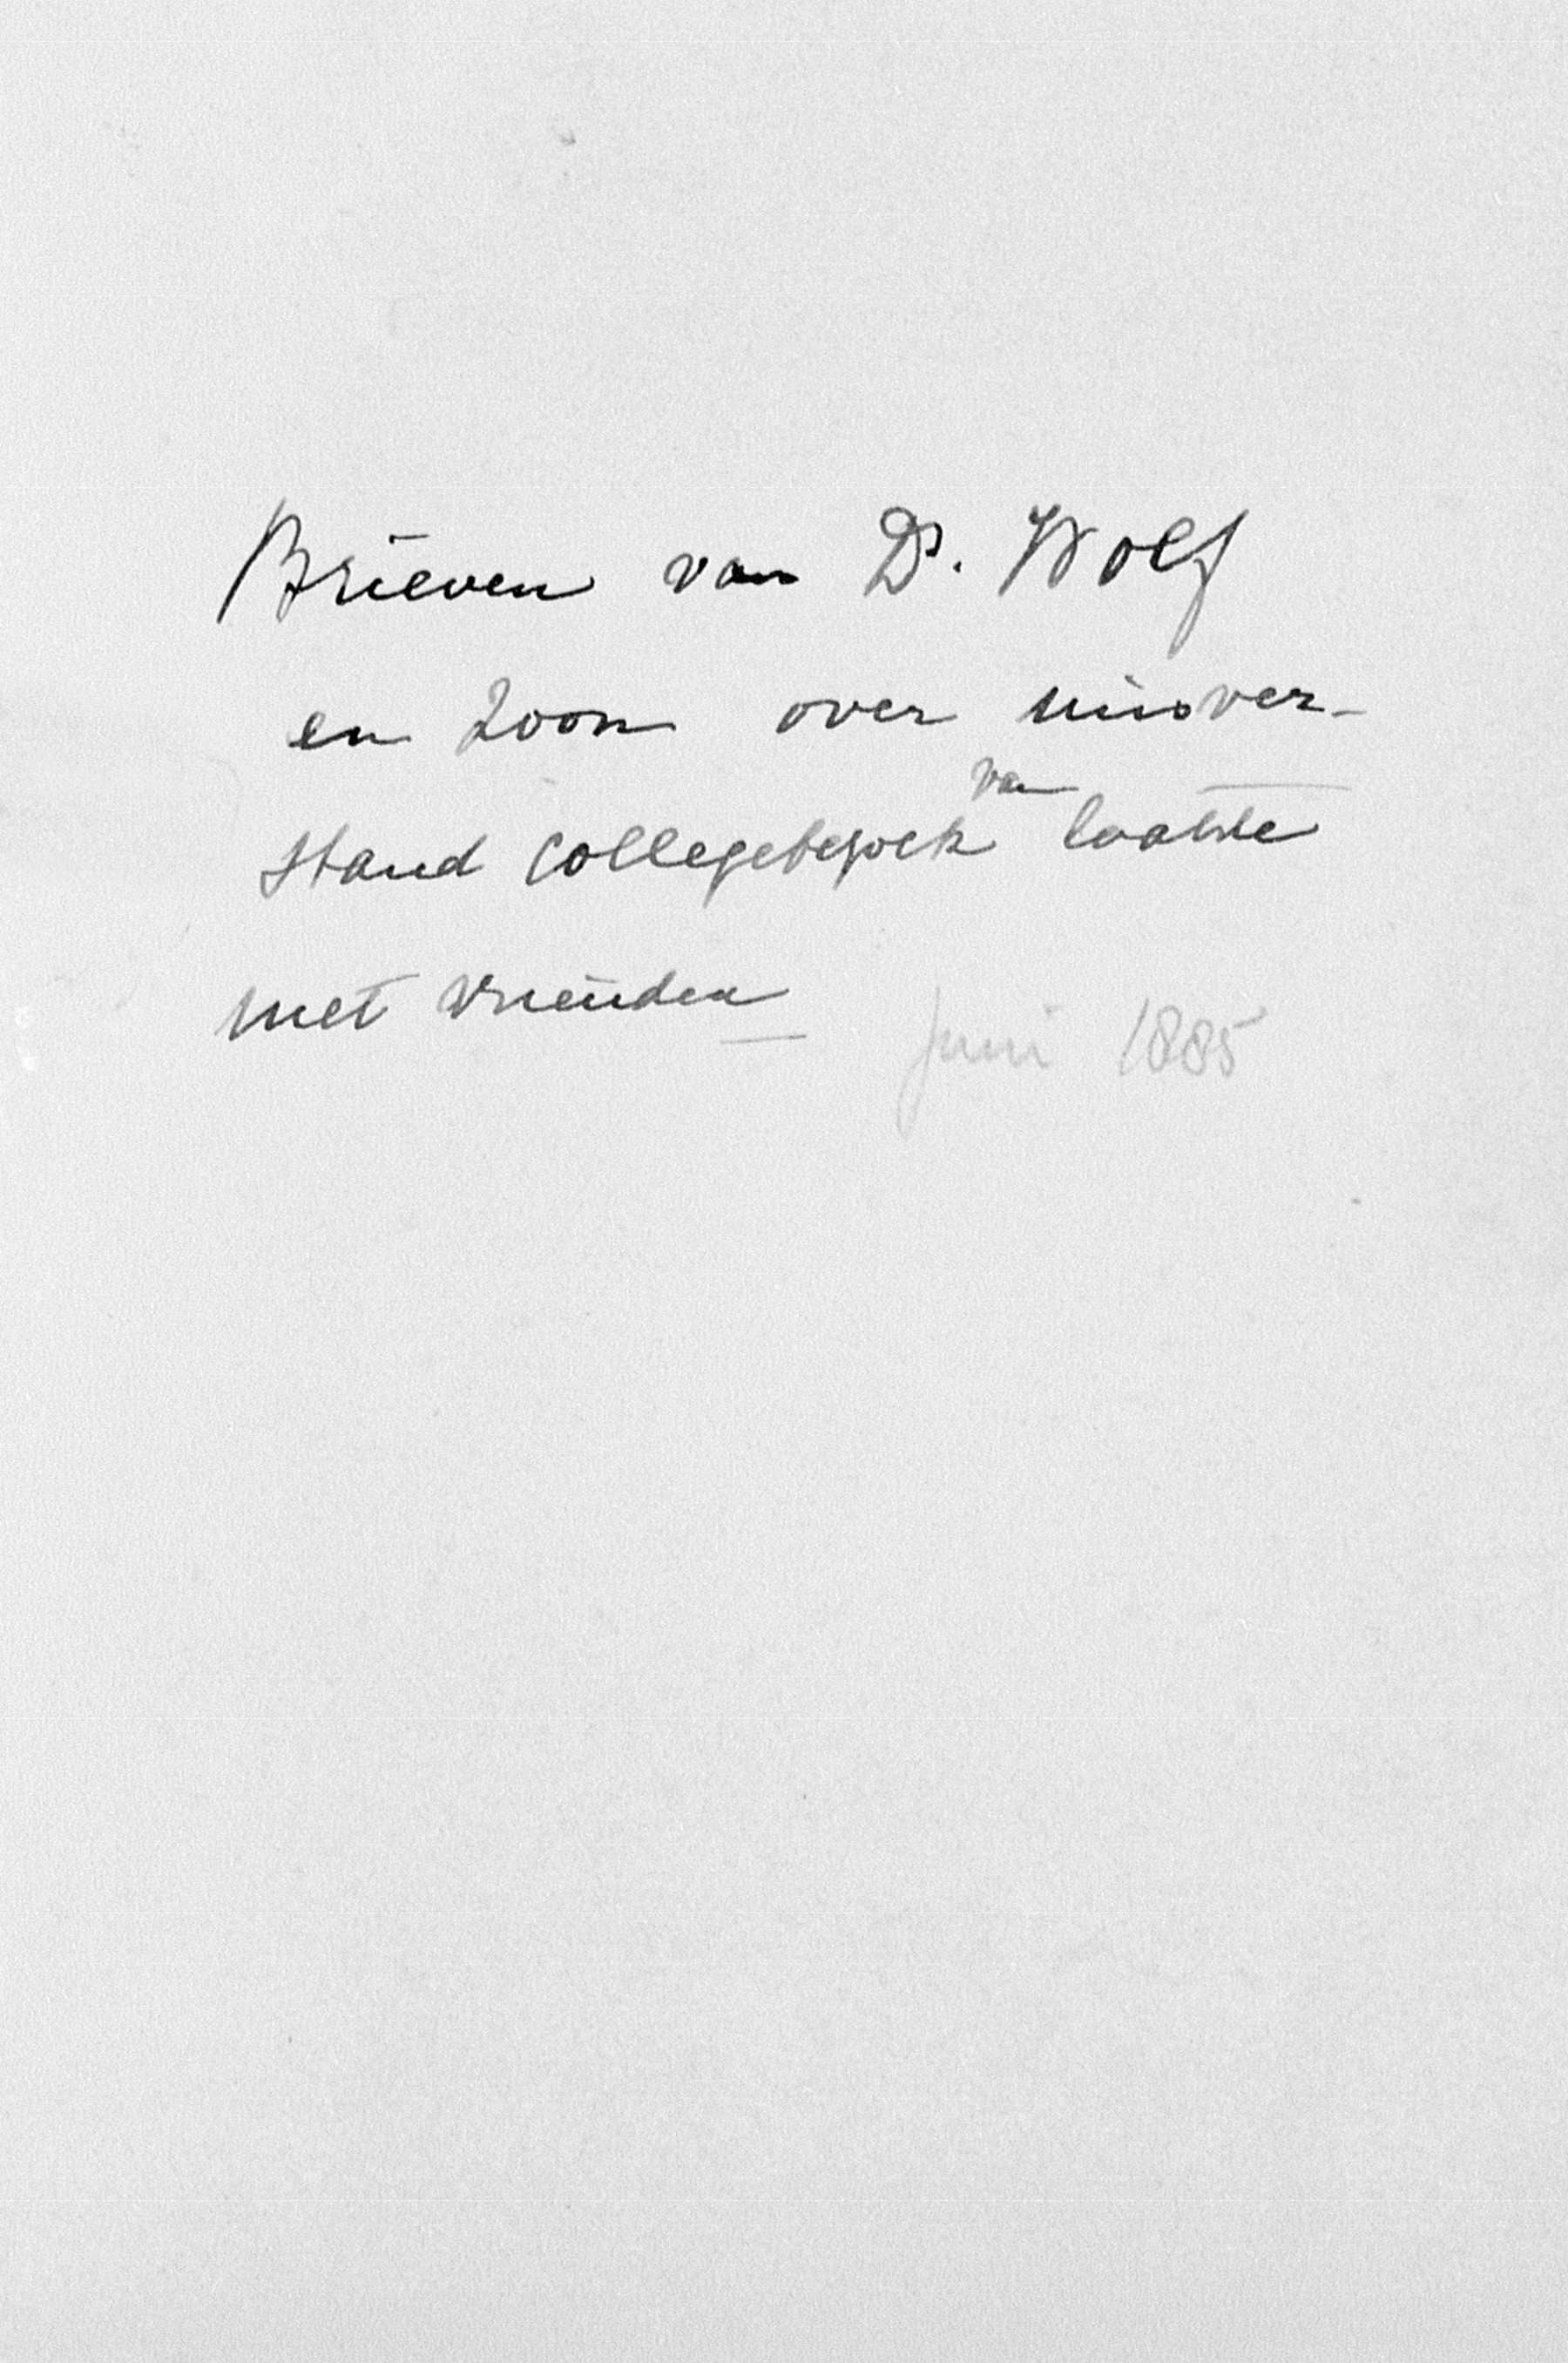 Brieven van Ds. Wolf
en Zoon over misver-
stand collegebezoek van laatste
met vrienden
Juni 1885